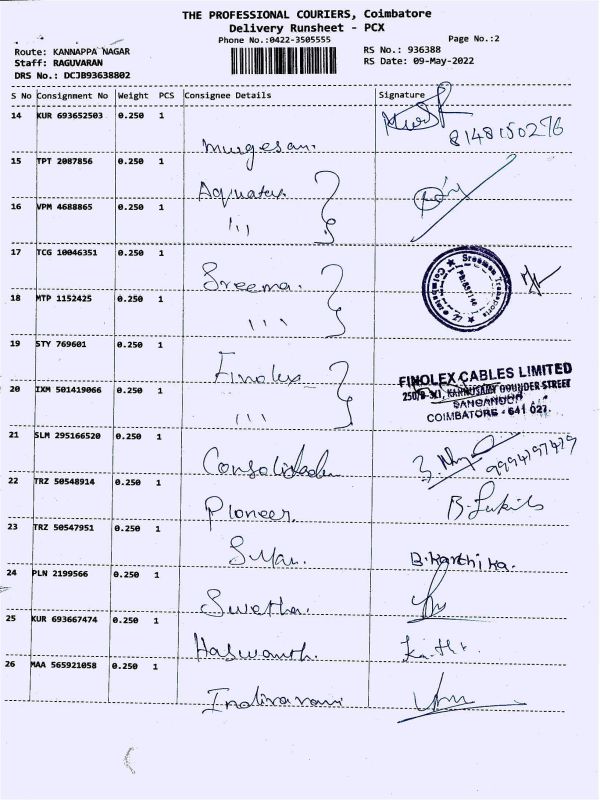 THE PROFESSIONAL COURIERS, Coimbatore
Delivery Runsheet - PCX
Phone No.:0422-3505555
Page No.:2
Route: KANNAPPA NAGAR
RS No.: 936388
Staff: RAGUVARAN
RS Date: 09-May-2022
DRS No.: DCJB93638802
S No Consignment No Weight PCS Consignee Details Signature
14 KUR 693652503 0.250 1
murgesan. 8148150276
15 TPT 2087856 0.250 1
Aquatex
16 VPM 4688865 0.250 1
,,,
17 TCG 10046351 0.250 1
Sreema. Sreeman Transports
18 MTP 1152425 0.250 1
,,,
19 STY 769601 0.250 1
Finolex FINOLEX CABLES LIMITED
20 IXM 501419066 0.250 1
GOUNDER STREET
,,, COIMBATORE - 641 027.
21 SLM 295166520 0.250 1
9994797479
22 TRZ 50548914 0.250 1
Pioneer.
23 TRZ 50547951 0.250 1
B.Karthika.
24 PLN 2199566 0.250 1
Swetha.
25 KUR 693667474 0.250 1
Haswanth.
26 MAA 565921058 0.250 1
Indirarani